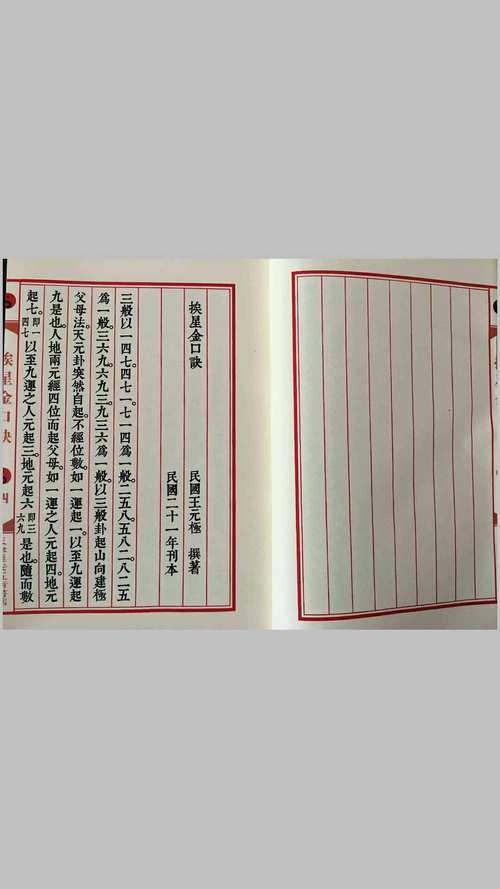 挨星金口訣
民國王元極 撰著
民國二十一年刊本
三般以一四七四七一。七一四爲一般。二五八。五八二。八二五
爲一般。三六九。六九三。九三六爲一般。以三般卦起山向建極
父母法。天元卦突然自起。不經位數。如一運起一。以至九運起
九是也。人地兩元經四位而起父母。如一運之人元起四。地元
起七。即一四七以至九運之人元起三。地元起六即三六九是也。隨而數
挨星金口訣
四